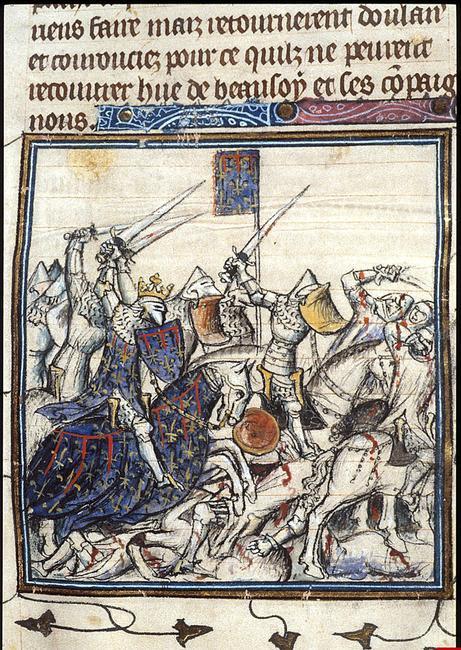 riens faire maiz retournerent doulan
et courouciez pour ce quilz ne peurent
recouurer hue de beausoy et ses cōpaig
nons.